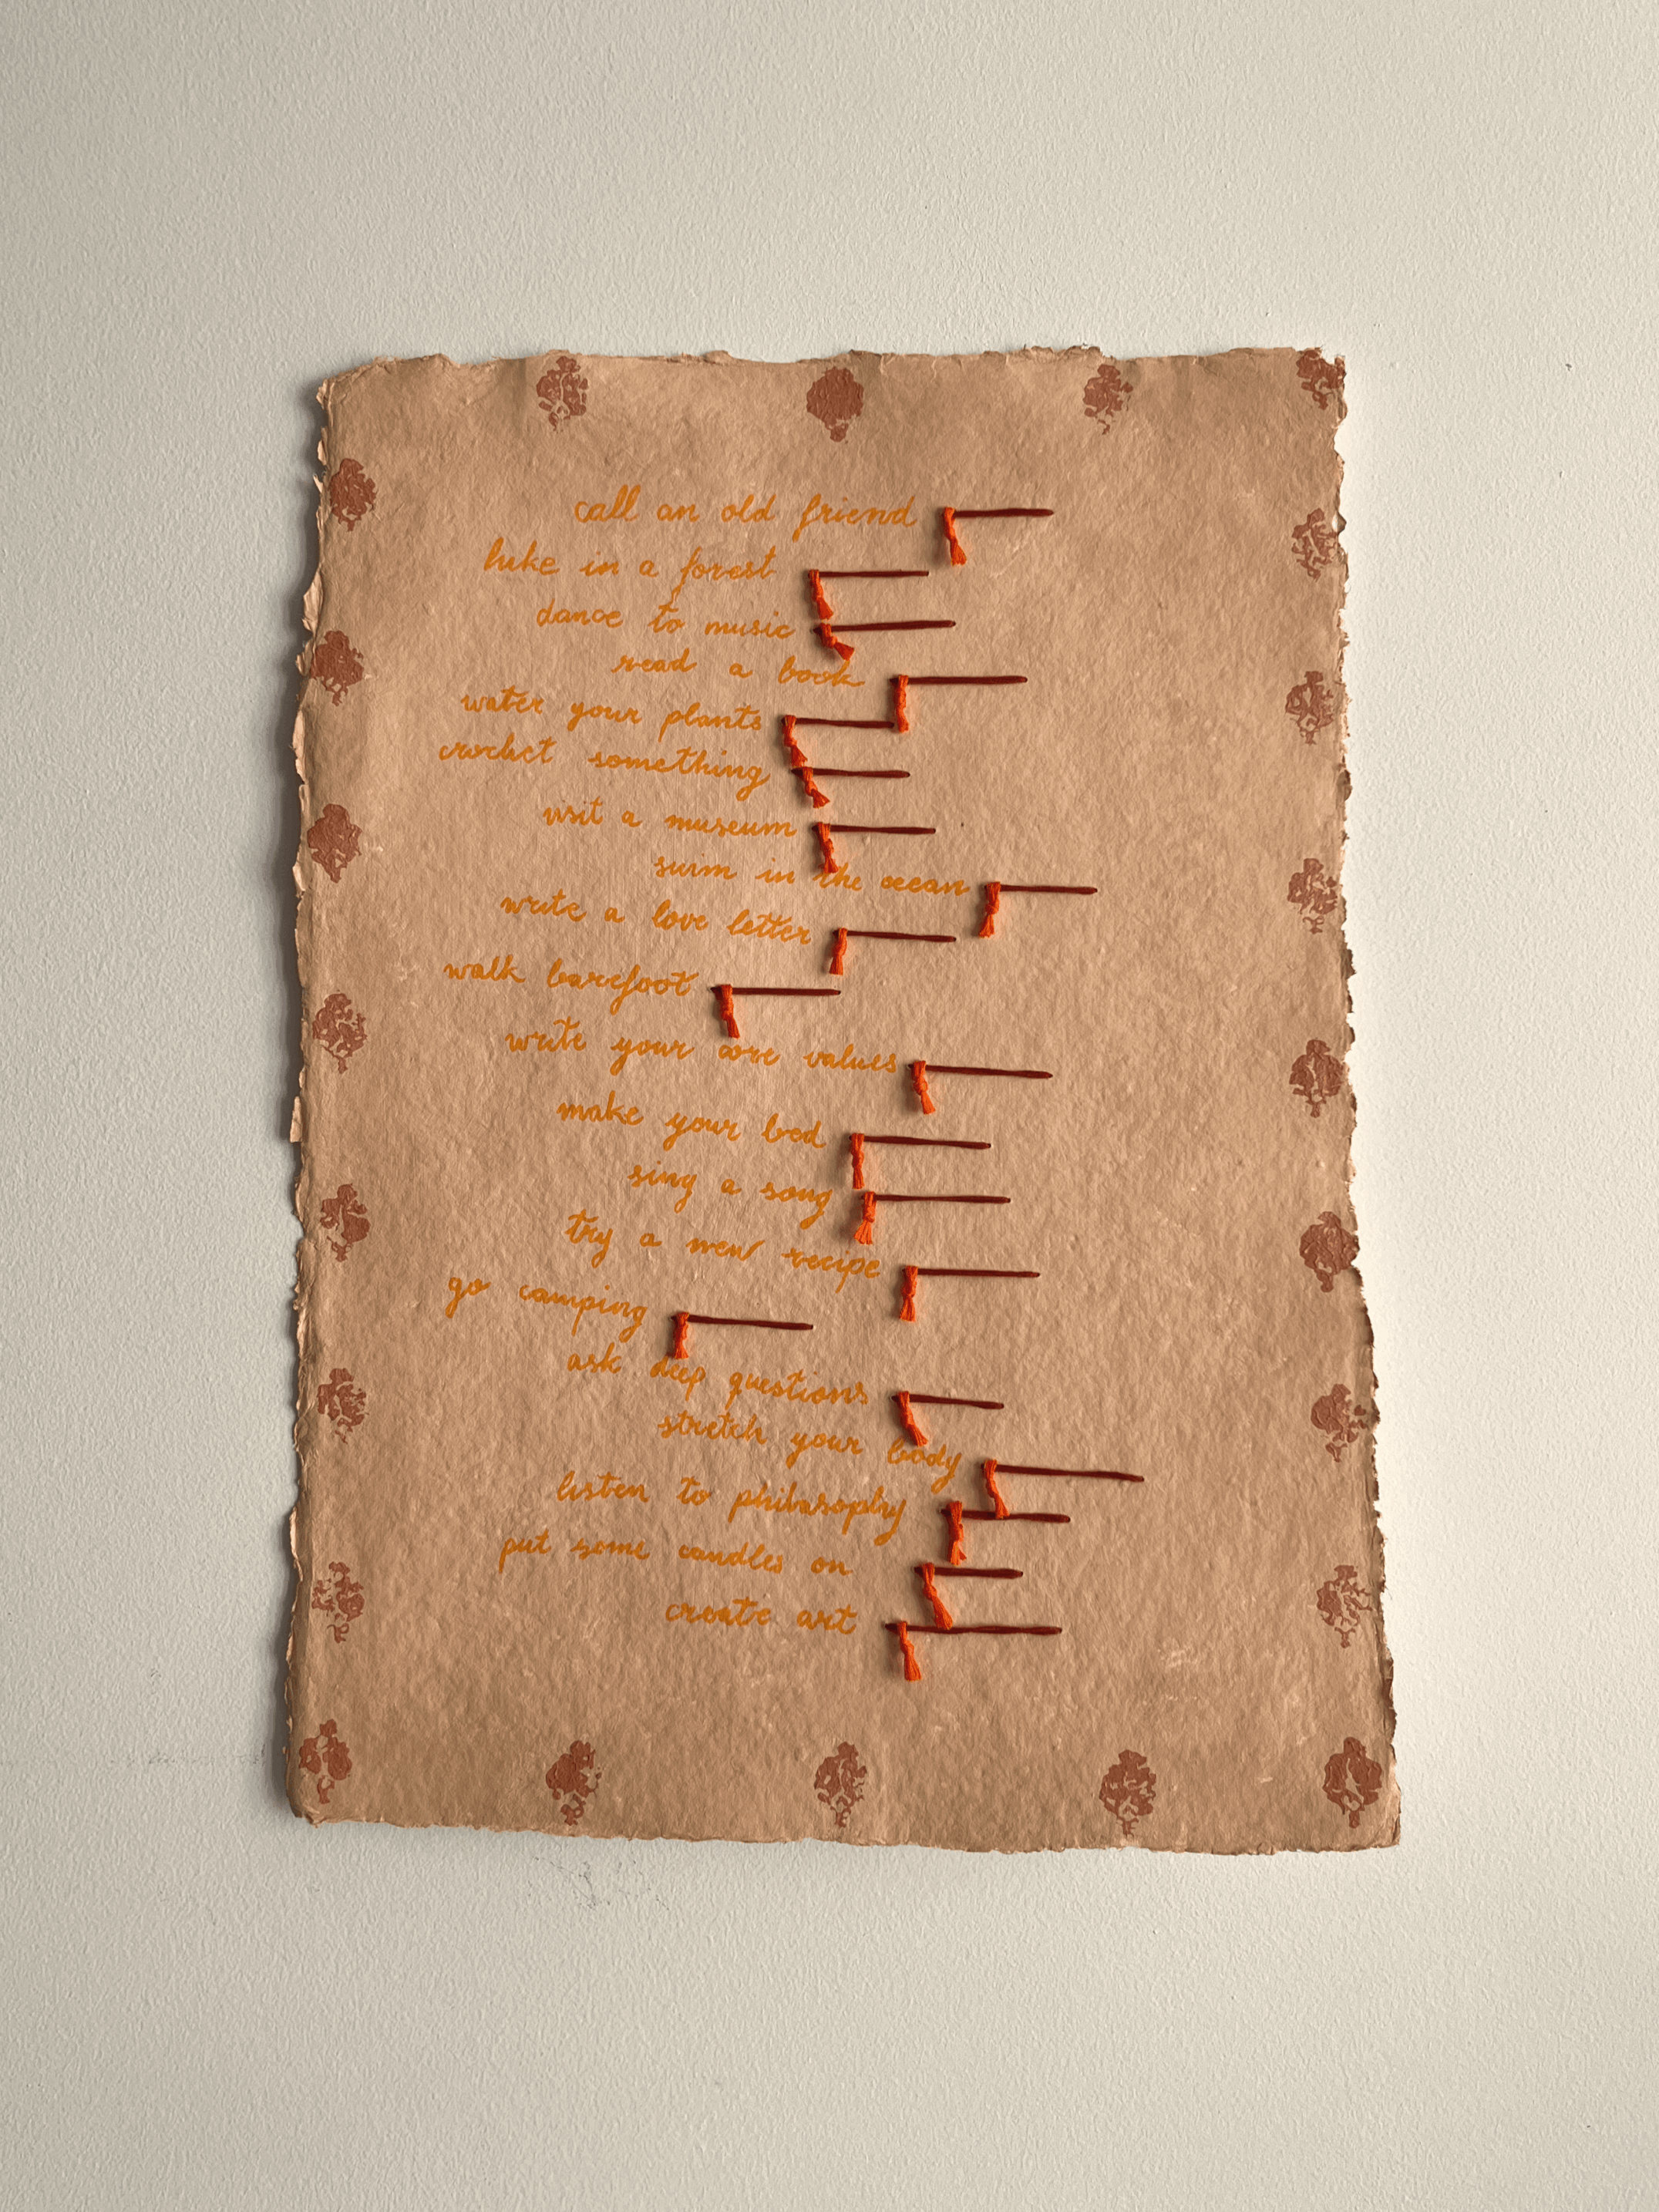 call an old friend
hike in a forest
dance to music
read a book
water your plants
crochet something
visit a museum
swim in the ocean
write a love letter
walk barefoot
write your core values
make your bed
sing a song
try a new recipe
go camping
ask deep questions
stretch your body
listen to philosophy
put some candles on
create art